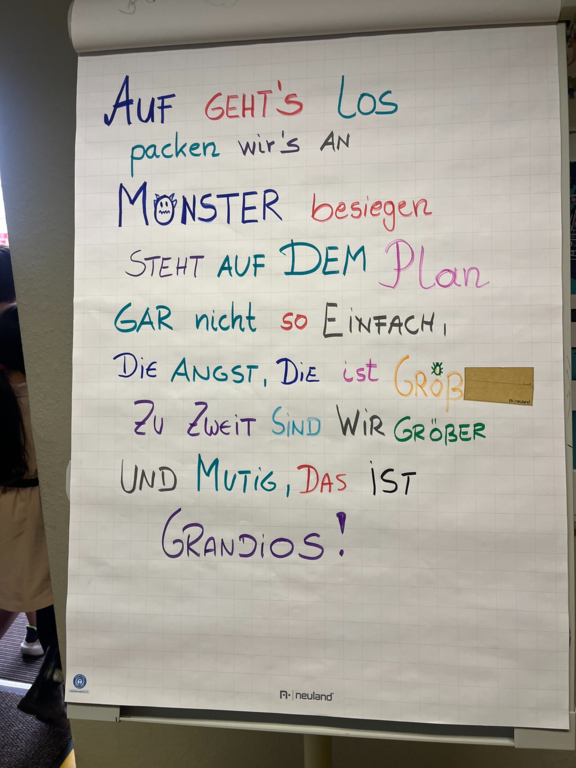 AUF GEHT'S LOS
packen wir's AN
MONSTER besiegen
STEHT AUF DEM Plan
GAR nicht so EiNFACH,
DiE ANGST, DiE ist GRÖß
ZU ZWEiT SiND WiR GRÖßER
UND MUTiG, DAS iST
GRANDiOS!
neuland